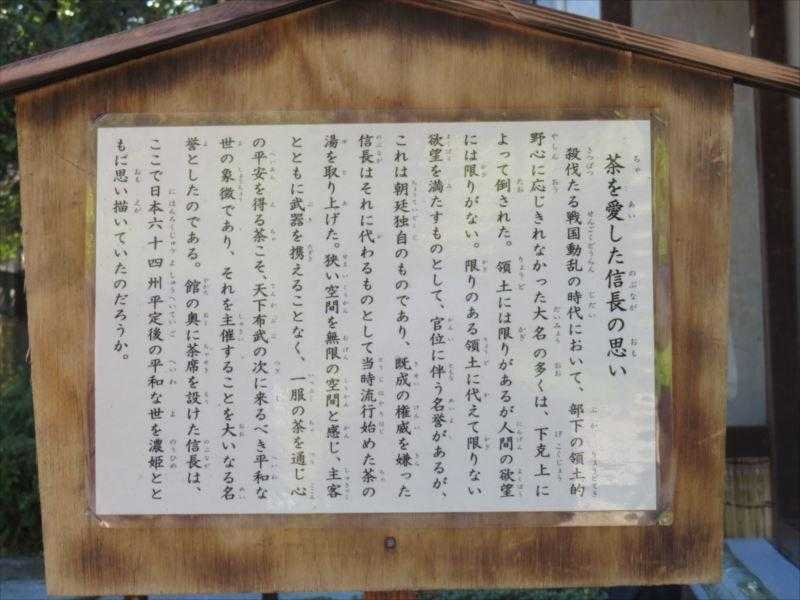 茶を愛した信長の思い
殺伐たる戦国動乱の時代において、部下の領土的
野心に応じきれなかった大名の多くは、下克上に
よって倒された。領土には限りがあるが人間の欲望
には限りがない。限りのある領土に代えて限りない
欲望を満たすものとして、官位に伴う名誉があるが、
これは朝廷独自のものであり、既成の権威を嫌った
信長はそれに代わるものとして当時流行始めた茶の
湯を取り上げた。狭い空間を無限の空間と感じ、主客
とともに武器を携えることなく、一服の茶を通じ心
の平安を得る茶こそ、天下布武の次に来るべき平和な
世の象徴であり、それを主催することを大いなる名
誉としたのである。館の奥に茶席を設けた信長は、
ここで日本六十四州平定後の平和な世を濃姫とと
もに思い描いていたのだろうか。